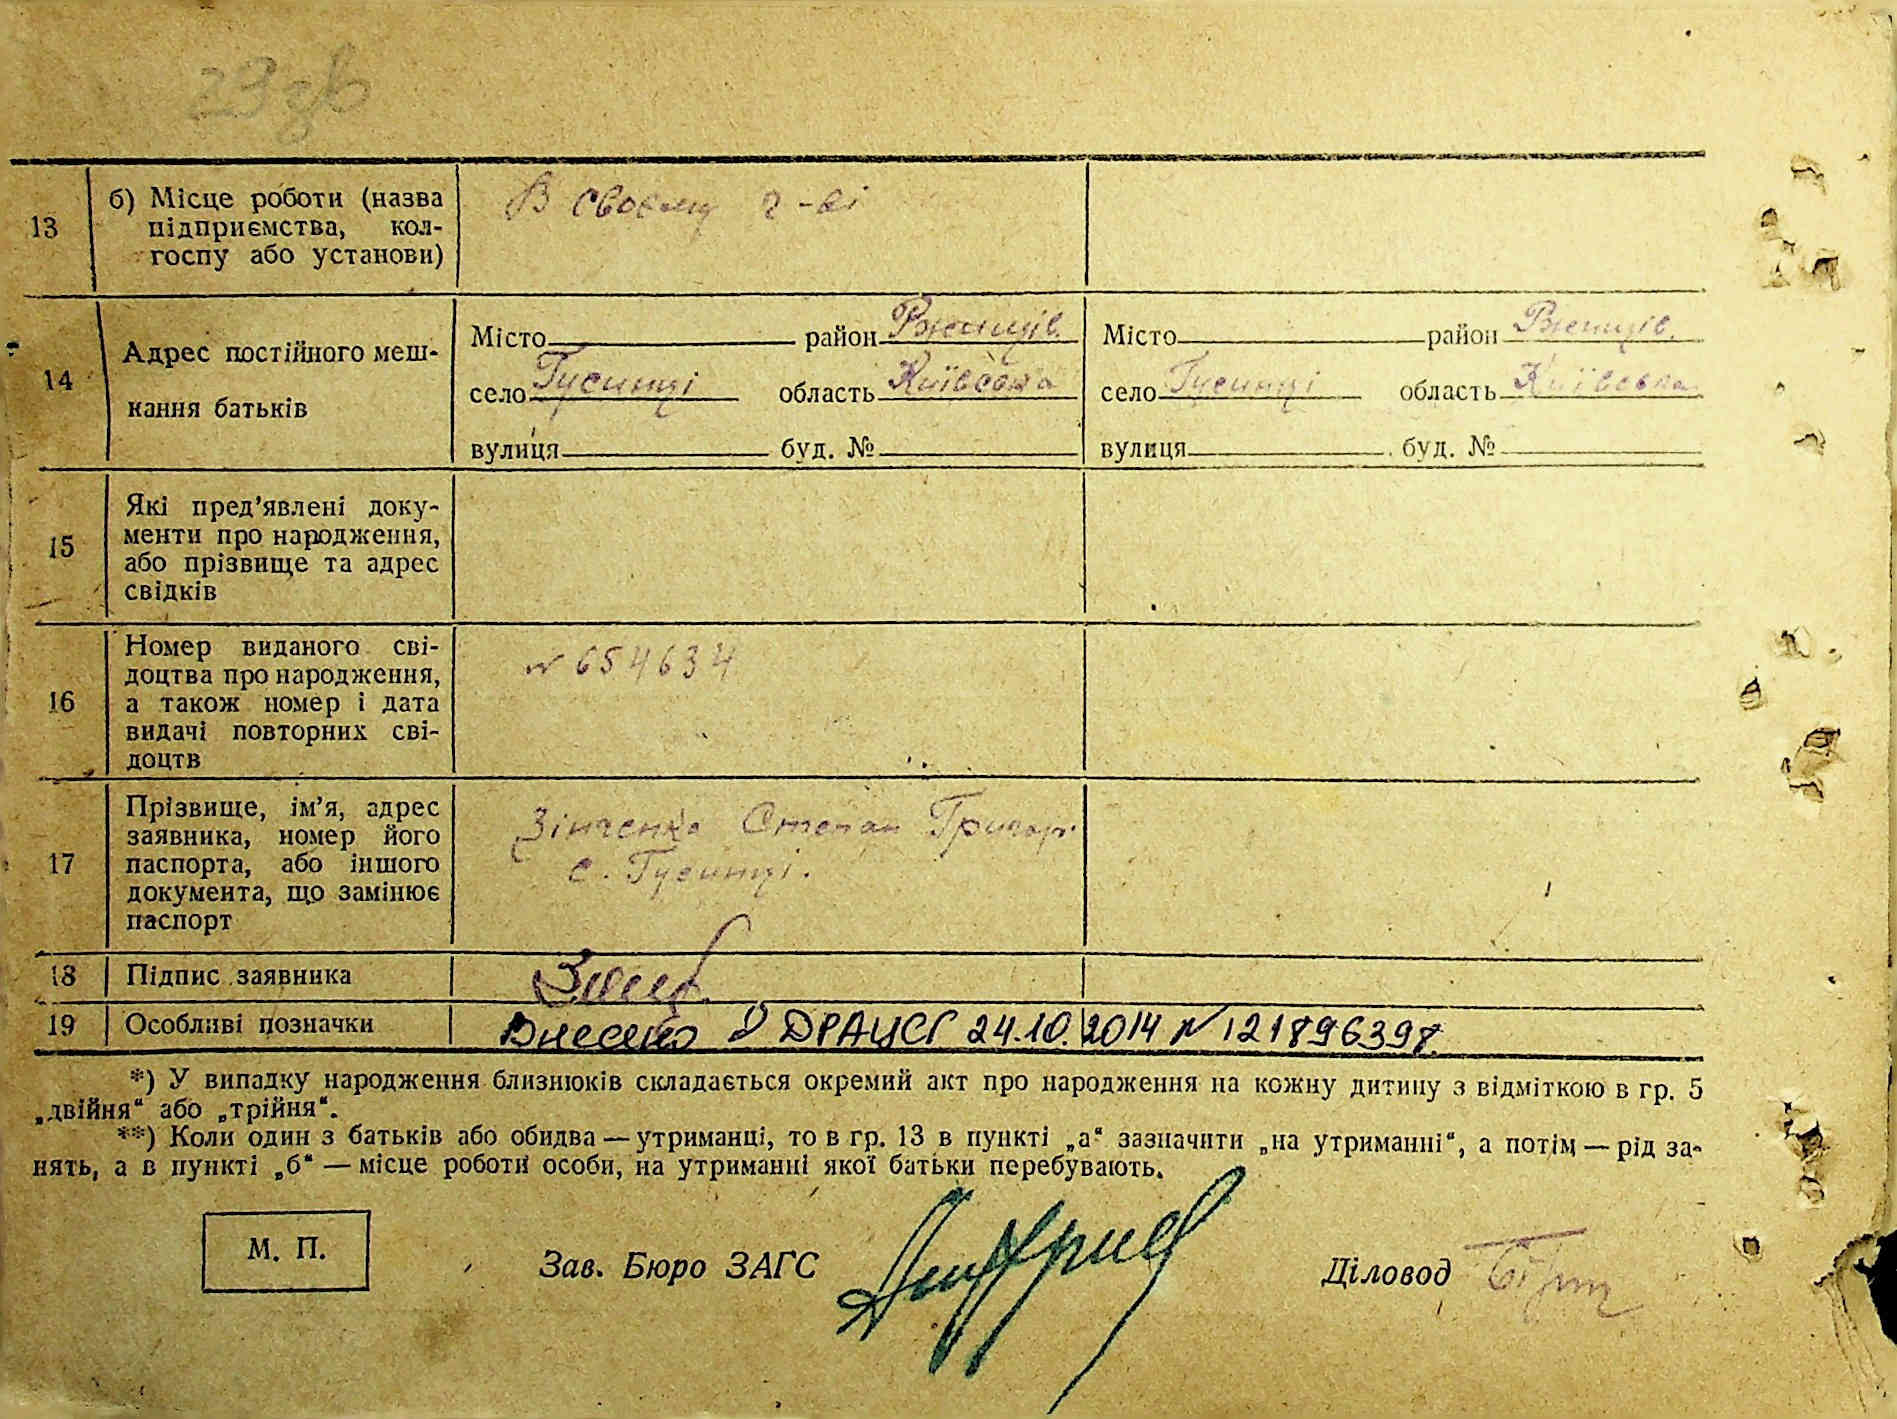 23 зв
13 б) Місце роботи (назва
підприємства, кол-
госпу або установи)
В своєму г-ві
14 Адрес постійного меш-
кання батьків
Місто район Ржищів.
село Гусинці область Київська
вулиця буд. №
Місто район Ржищів.
село Гусинці область Київська
вулиця буд. №
15 Які пред’явлені доку-
менти про народження,
або прізвище та адрес
свідків
16 Номер виданого сві-
доцтва про народження,
а також номер і дата
видачі повторних сві-
доцтв
№ 654634
17 Прізвище, ім’я, адрес
заявника, номер його
паспорта, або іншого
документа, що замінює
паспорт
Зінченко Степан Григор.
с. Гусинці.
18 Підпис заявника
19 Особливі позначки Внесено у ДРАЦСГ 24.10.2014 № 121896398.
*) У випадку народження близнюків складається окремий акт про народження на кожну дитину з відміткою в гр. 5
„двійня“ або „трійня“.
**) Коли один з батьків або обидва — утриманці, то в гр. 13 в пункті „а“ зазначити „на утриманні“, а потім — рід за-
нять, а в пункті „б“ — місце роботи особи, на утриманні якої батьки перебувають.
М. П.
Зав. Бюро ЗАГС
Діловод